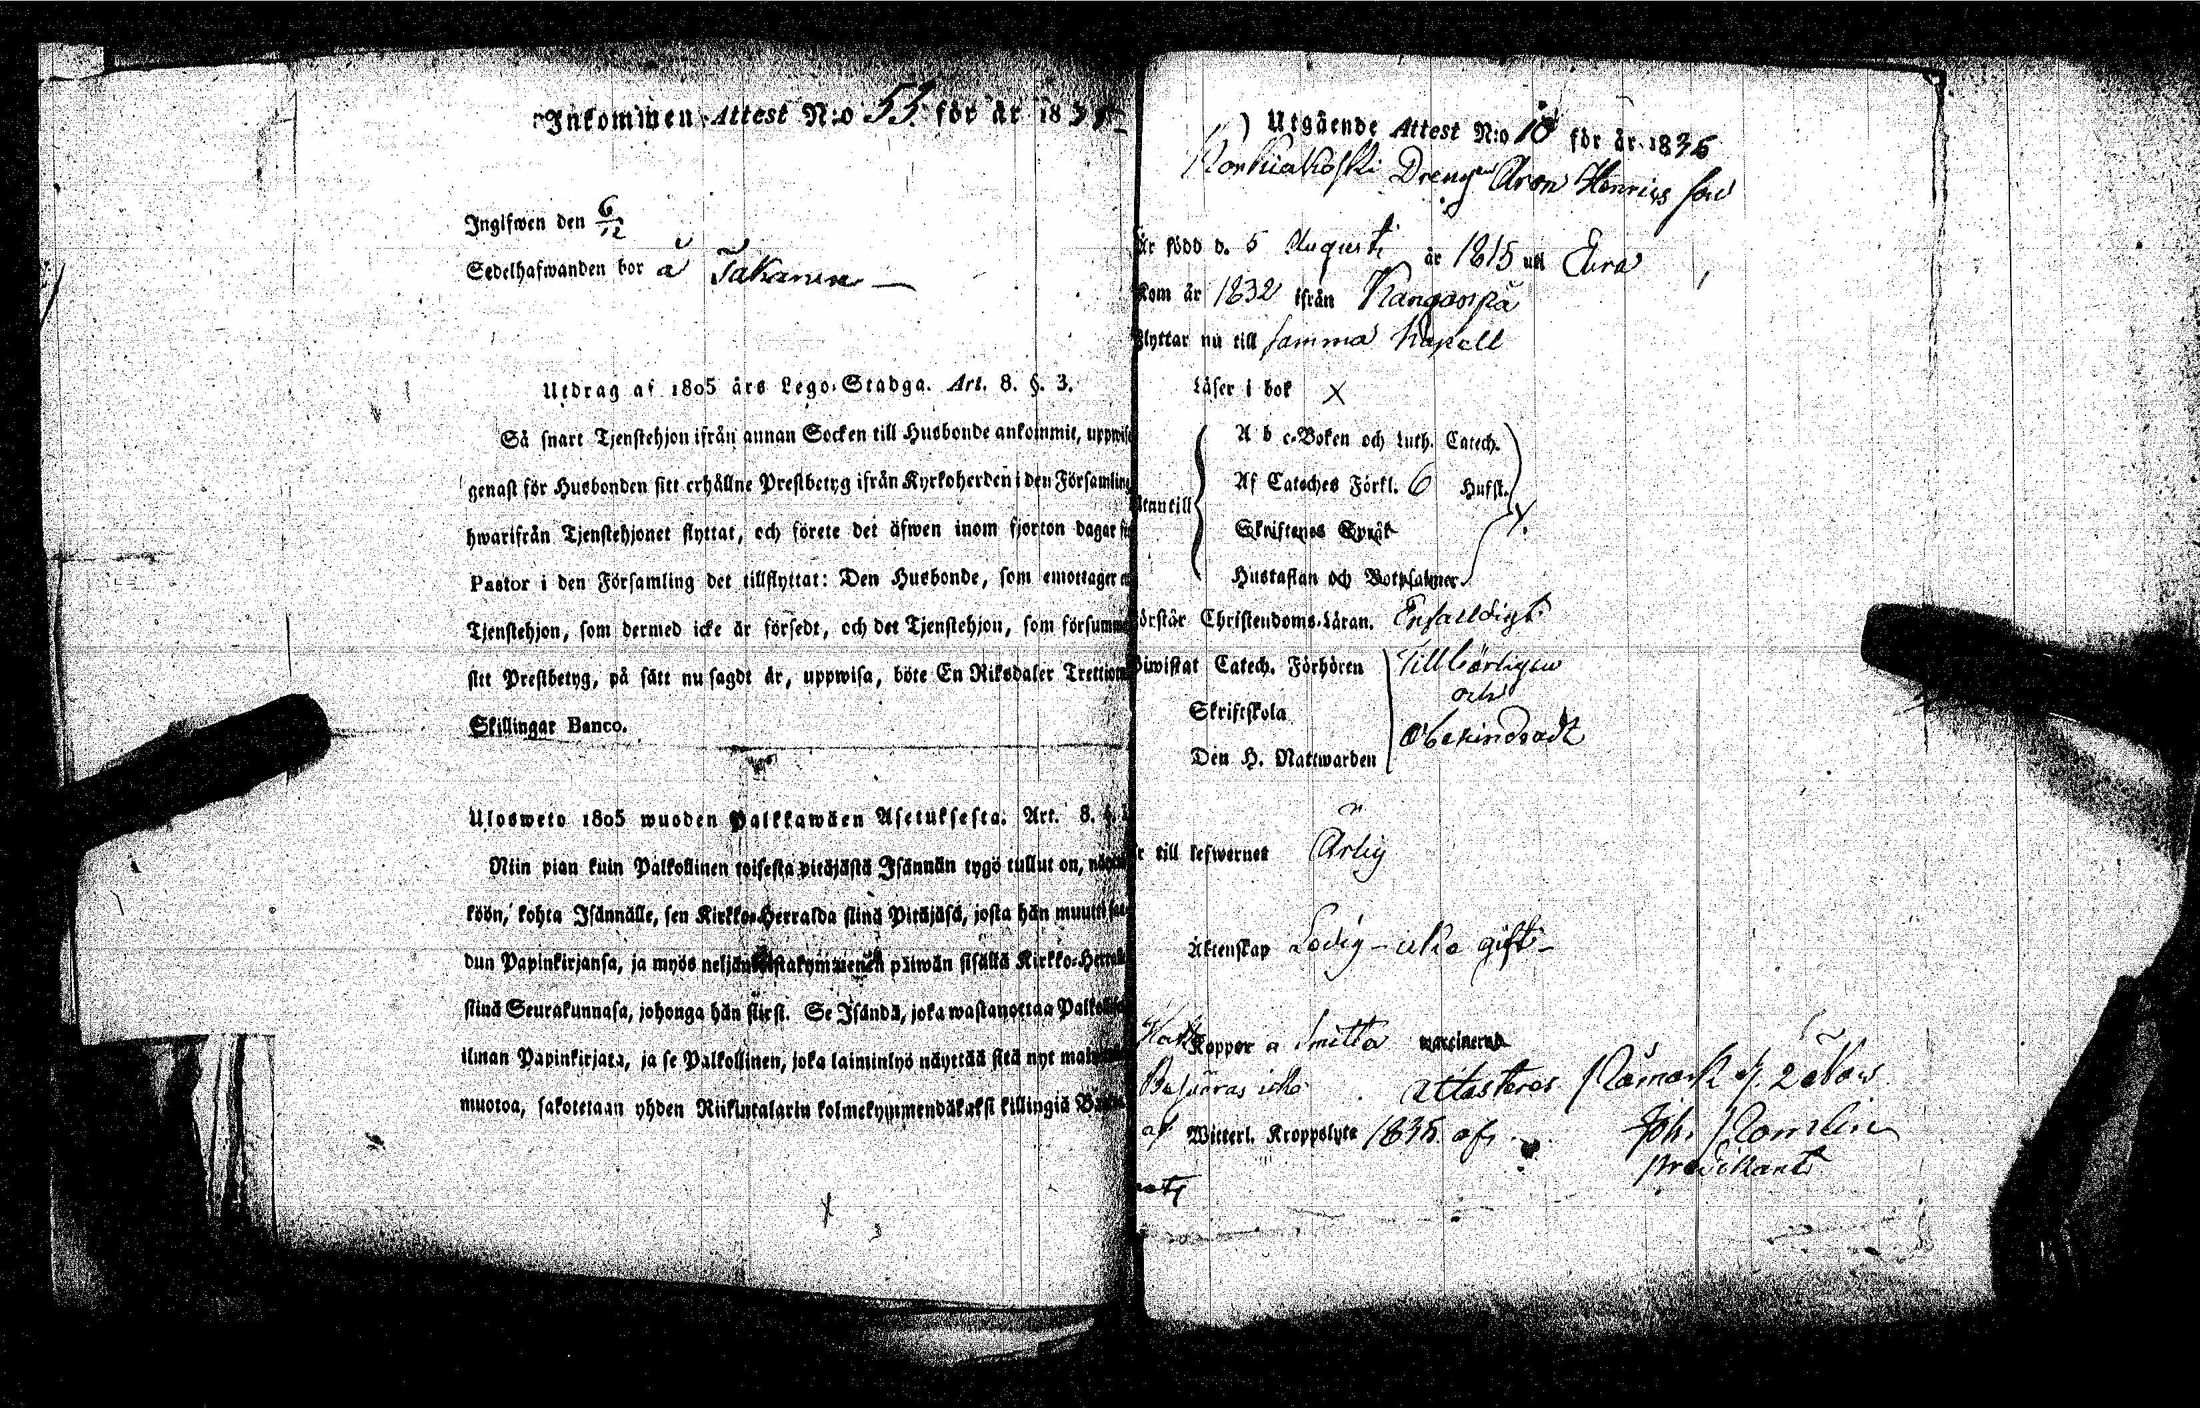 Inkommen Attest N:o 53. för år 18
Ingifwen den 6/12
Sedelhafwanden bor å Takanen
Utdrag af 1805 års Lego-Stadga. Art. 8. §. 3.
Så snart Tjenstehjon ifrån annan Socken till Husbonde ankommit, uppwise
genast för Husbonden sitt erhållne Prestbetyg ifrån Kyrkoherden i den Församling
hwarifrån Tjenstehjonet flyttat, och förete det äfwen inom fjorton dagar
Pastor i den Församling det tillflyttat: Den Husbonde, som emottager
Tjenstehjon, som dermed icke är försedt, och det Tjenstehjon, som försumm
sitt Prestbetyg, på sätt nu sagdt är, uppwisa, böte En Riksdaler Trettio
Skillingar Banco.
Ulosweto 1805 wuoden Palkkawäen Asetuksesta. Art. 8. §.
Niin pian kuin Palkollinen toisesta pitäjästä Isännän tygö tullut on,
köön, kohta Isännälle, sen Kirkko-Herralda siinä Pitäjäsä, josta hän muutti
dun Papinkirjansa, ja myös neljäntoistakymmenen päiwän sisällä Kirkko-
siinä Seurakunnasa, johonga hän siirst. Se Isändä, joka wastanottaa
ilman Papinkirjata, ja se Palkollinen, joka laiminlyö näyttää sitä nyt
muotoa, sakotetaan yhden Riikintalarin kolmekymmendäkaksi killingiä
) Utgående Attest N:o 10 för år 1836
Korkiakoski Drengen Aron Henrics son
Är född d. 5 Augusti år 1815 uti Eura
Kom år 1832 ifrån Kangaspä
Flyttar nu till samma Kapell
Läser i bok X
Utantill
A b c-Boken och Luth. Catech.
Af Cateches Förkl. 6 Hufst.
Skriftenes Språk
Hustaflan och Botpsalmer
Förstår Christendoms-Läran. Enfaldigt
Biwistat Catech. Förhören
Skriftskola
Den H. Nattwarden
Tillbörligen
och
Obehindradt
Är till lefwernet Ärlig
Äktenskap Ledig – icke gift –
Haft Koppor a Smitta vaccinerad
Besväras icke
af Witterl. Kroppslyte
attesteras
Joh. Romlin
predikant